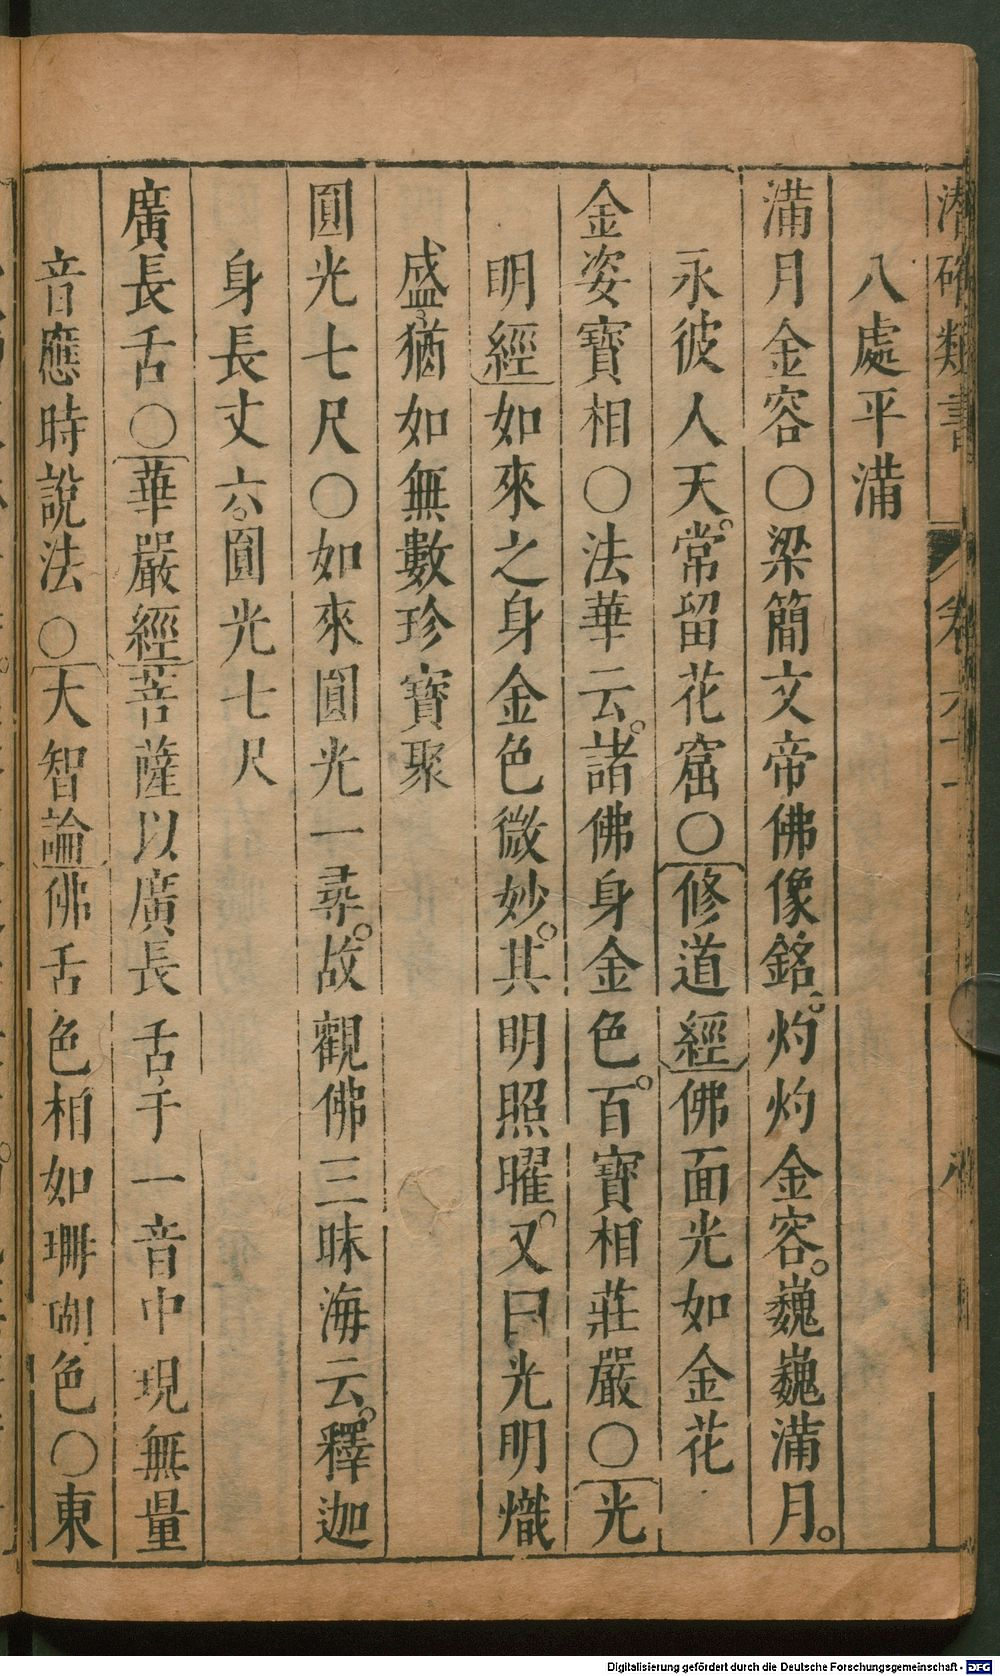 潛確類書 卷六十 八
八處平滿
滿月金容〇梁簡文帝佛像銘。灼灼金容。巍巍滿月。
永彼人天。常留花窟〇修道經佛面光如金花
金姿寶相〇法華云。諸佛身金色。百寶相莊嚴〇光
明經如來之身金色微妙。其明照曜。又曰光明熾
盛，猶如無數珍寶聚
圓光七尺〇如來圓光一尋。故觀佛三昧海云。釋迦
身長丈六。圓光七尺
廣長舌〇華嚴經菩薩以廣長舌，于一音中現無量
音應時說法〇大智論佛舌色相如珊瑚色〇東
Digitalisierung gefördert durch die Deutsche Forschungsgemeinschaft - DFG